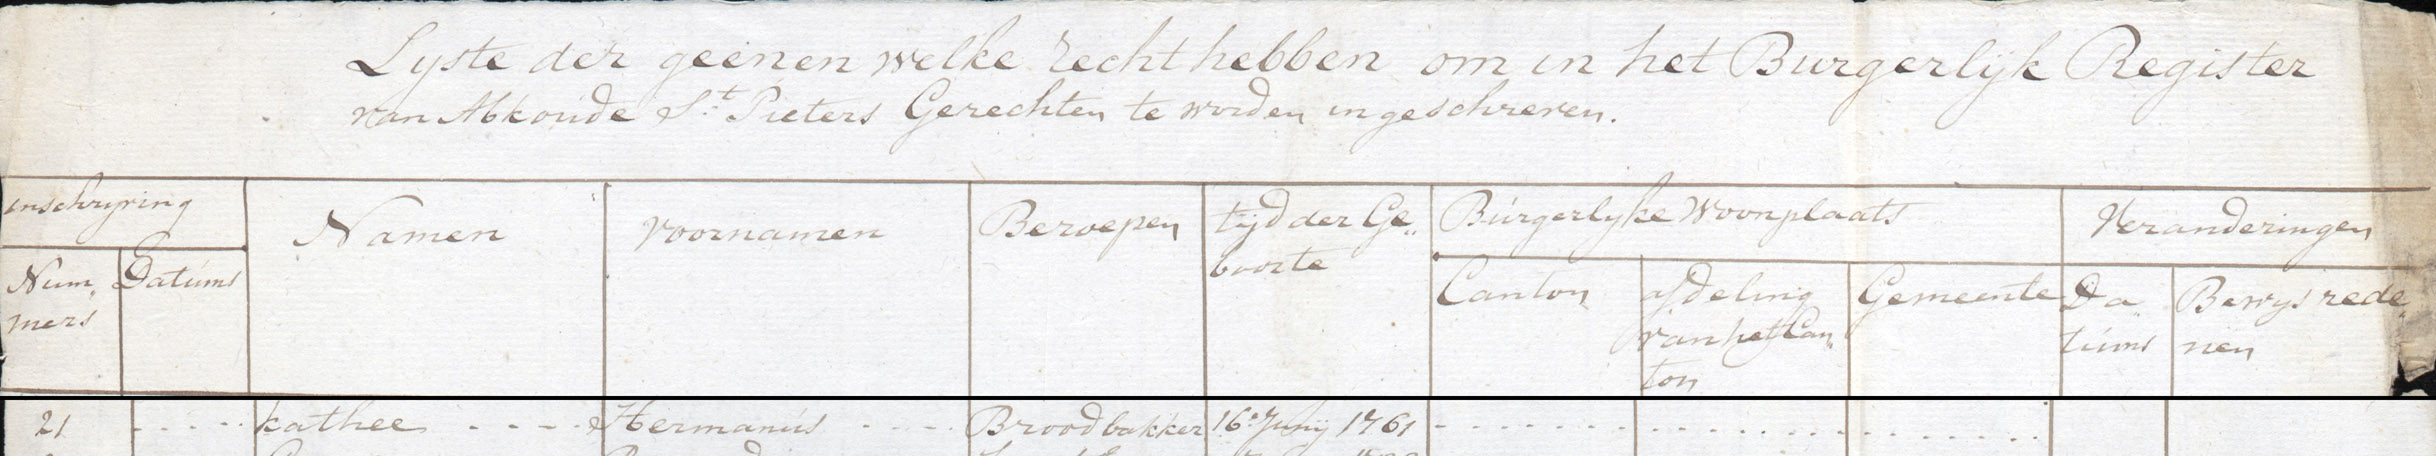 Lyste der geenen welke recht hebben om in het Burgerlyk Register
van Abkoude St. Pieters Gerechten te worden ingeschreven.
inschryving Namen Voornamen Beroepen tijd der Ge„ Burgerlyke Woonplaats Veranderingen
boorte
Num„ Datums Canton afdeling Gemeente Da Bewys rede„
mers van het Can„ tums nen
ton
21 kathee Hermanus Broodbakker 16e Juny 1761